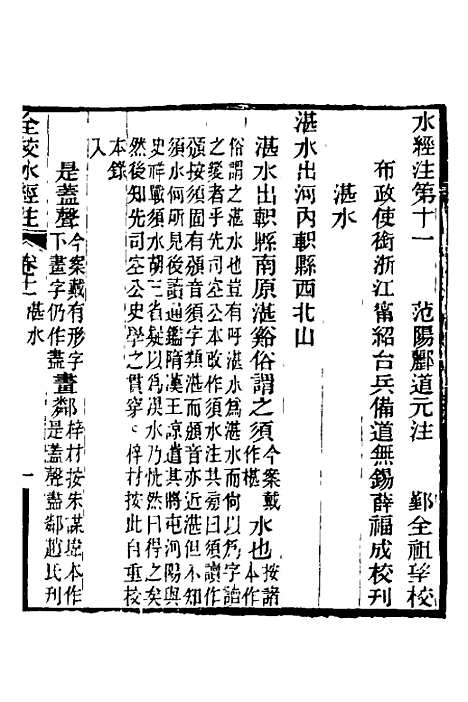 水經注第十一　范陽酈道元注　鄞全祖望校
布政使銜浙江甯紹台兵備道無錫薛福成校刊
湛水
湛水出河內軹縣西北山
湛水出軹縣南原湛谿俗謂之須今案戴作椹水也按諸本作
俗謂之湛水也豈有呼湛水爲湛水而何以爲字誼
之愛者乎先司空公本改作須水注其旁曰須讀作
頒按須固有頒音須字類湛而頒音亦近湛但不知
須水何所見後讀通鑑隋漢王諒遣其將屯河陽與
史祥戰須水胡三省疑以爲湨水乃恍然曰得之矣
然後知先司空公史學之貫穿　梓材按此自重校
本錄
入
是蓋聲今案戴有形字下盡字仍作盡畫鄰梓材按朱謀㙔本作是蓋聲盡鄰趙氏刊
全校水經注　卷十一　湛水　一